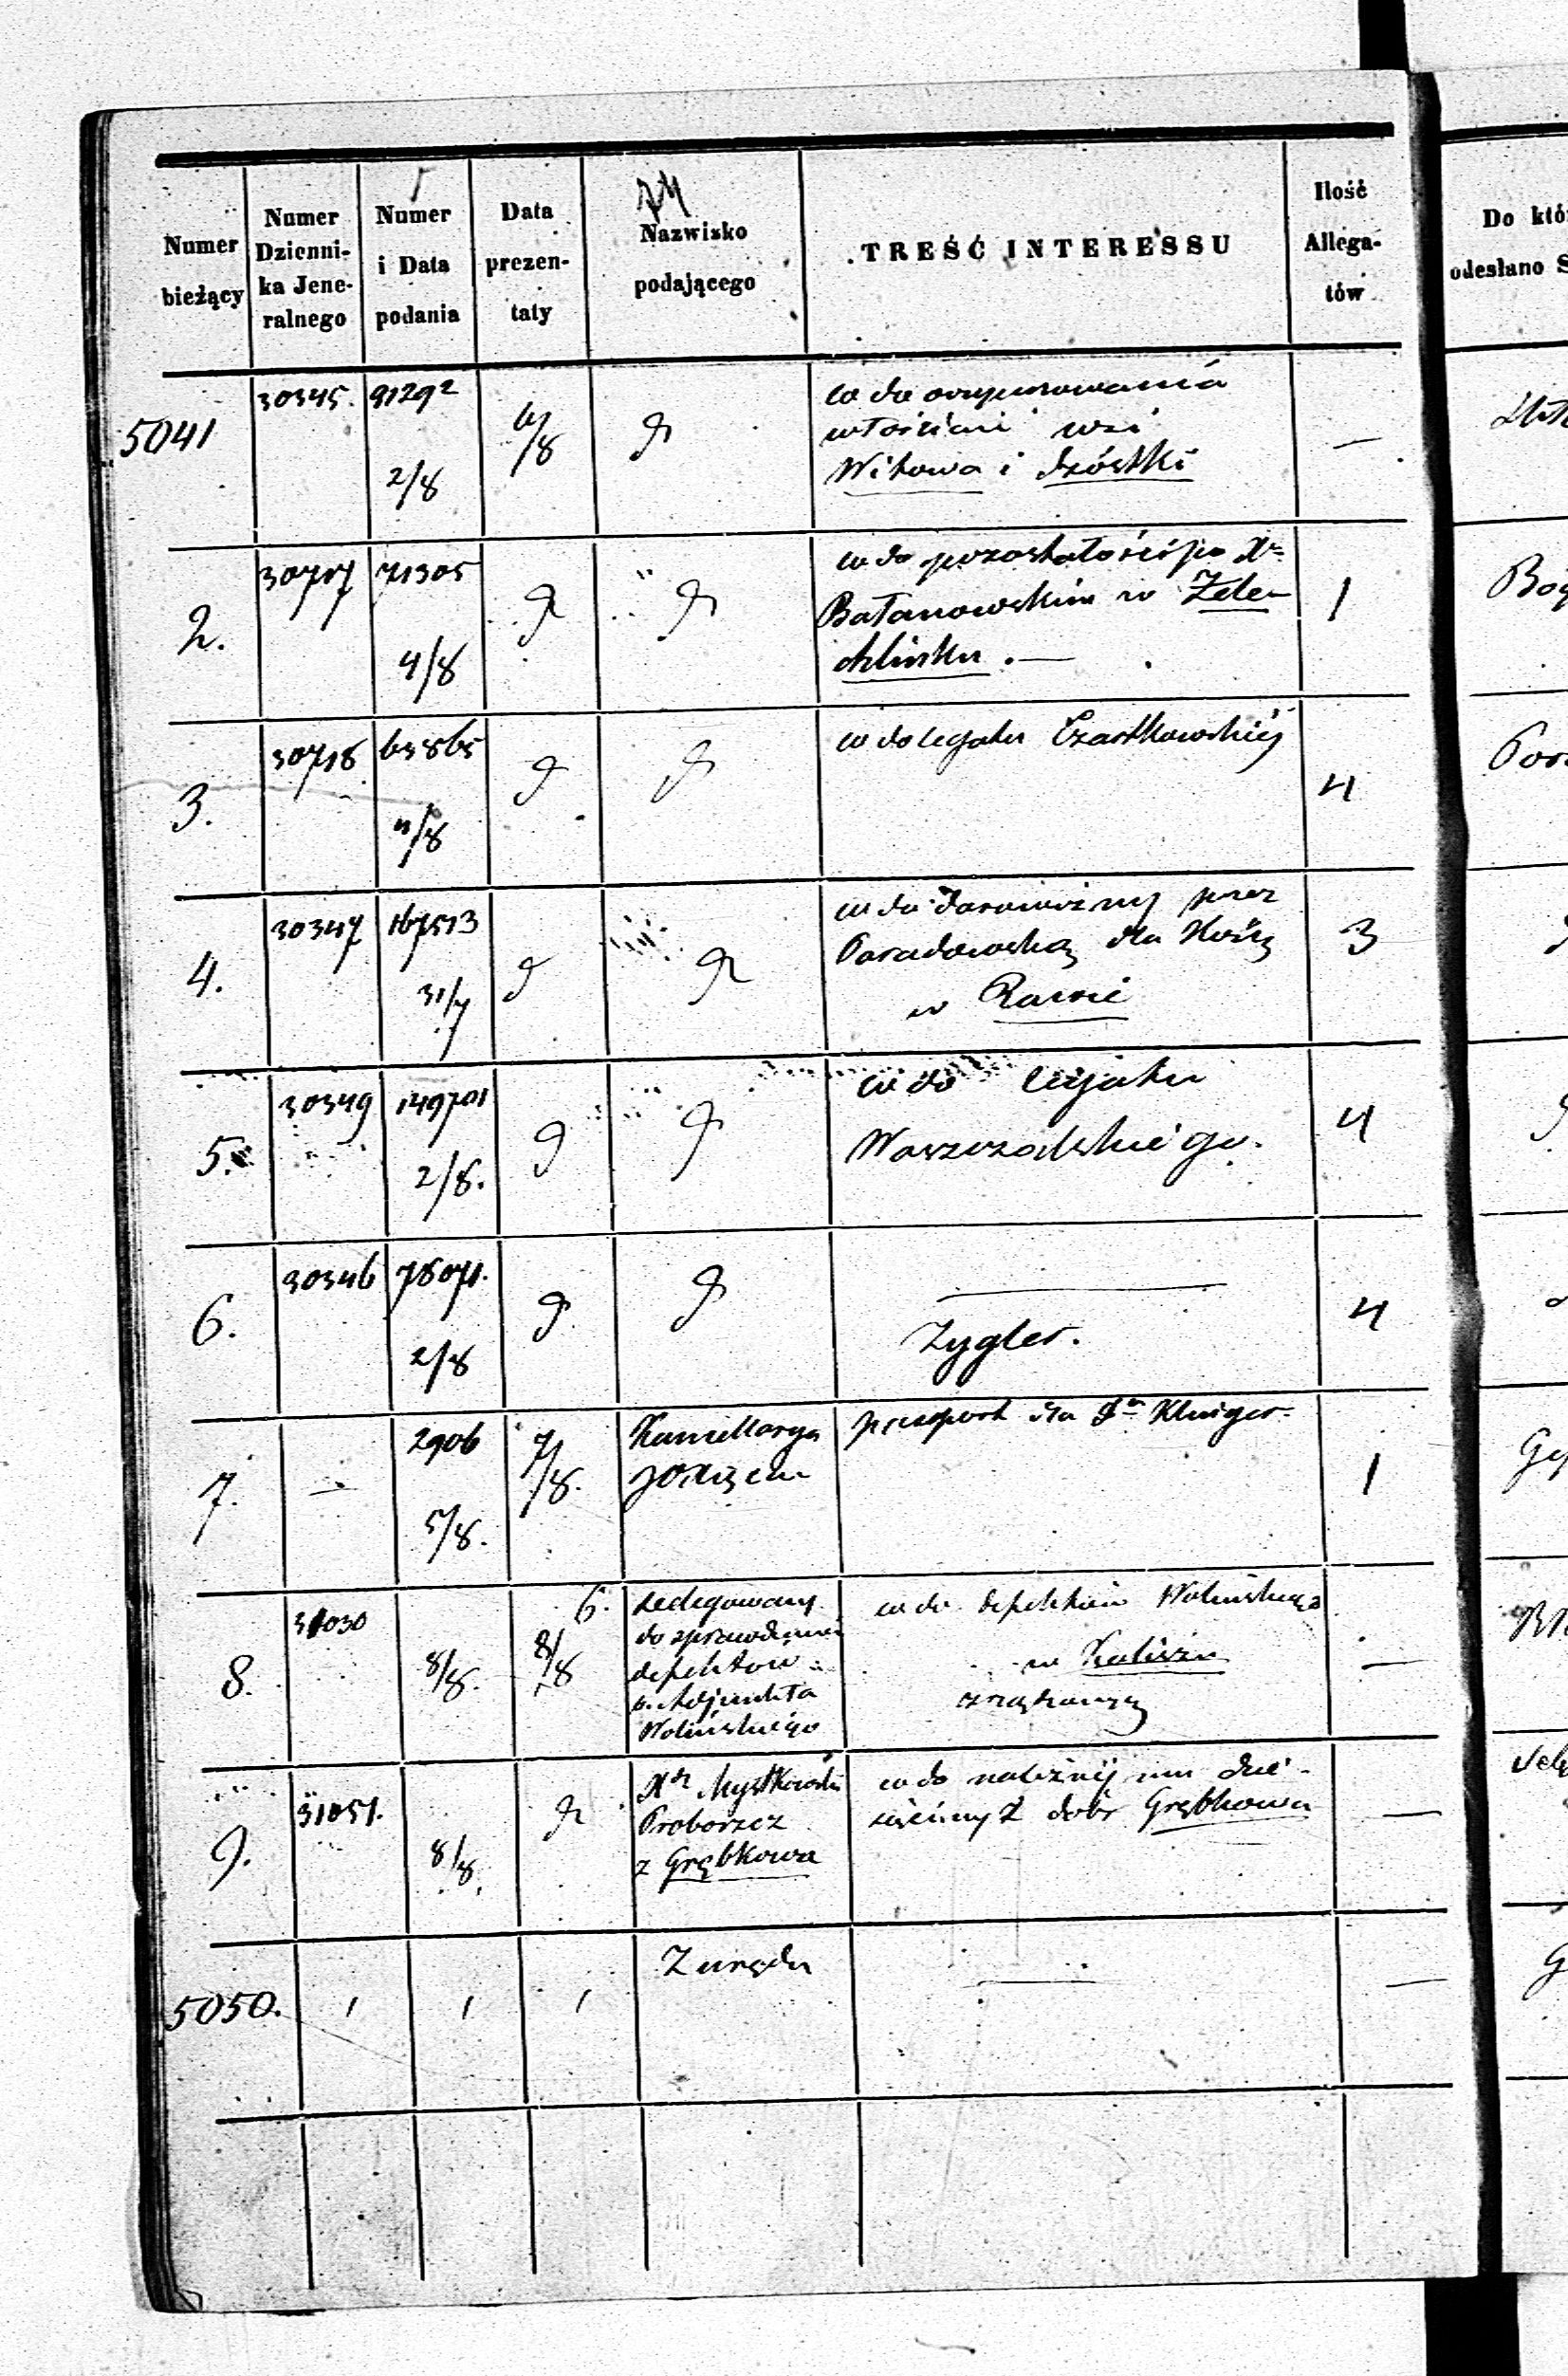 Numer
bieżący
Numer
Dzienni-
ka Jene-
ralnego
Numer
i Data
podania
Data
prezen-
taty
Nazwisko
podającego
TREŚĆ INTERESSU
Ilość
Allega-
tów
Do któ
odesłano S
5041
30345.
91292
2/8
6/8
d
co do
włościan wsi
Witowa i
—
2.
30717
71305
4/8
d
d
co do pozostałości po Xu
Batanowskim w Zdu-
.—
1
3.
30718
63865
4/8
d
d
co do legatu Czartkowskiéj
4
4.
30347
167513
31/7
d
d
co do darowizny przez
Paradowską dla Kośc
w Rawie
3
5.
30349
149701
2/8.
d
d
co do legatu
Waszczalskiego.
4
6.
30346
78071.
2/8
d
d
—
Zygler.
4
7.
—
2906
5/8.
7/8.
Kancellarya
paszport dla Kluger.
1
8.
31030
8/8.
6.
8/8
Delegowany
do sprawdzenia
defektów
b. Adjunkta
Wolińskiego
co do defektów Wolińskiego
w Kaliszu
—
9.
31051.
8/8.
d
Xdz Mystkowski
Proboszcz
z Grębkowa
co do należnéj mu dzie-
sięciny z dóbr Grębkowa
—
5050.
Z urzędu
—
—